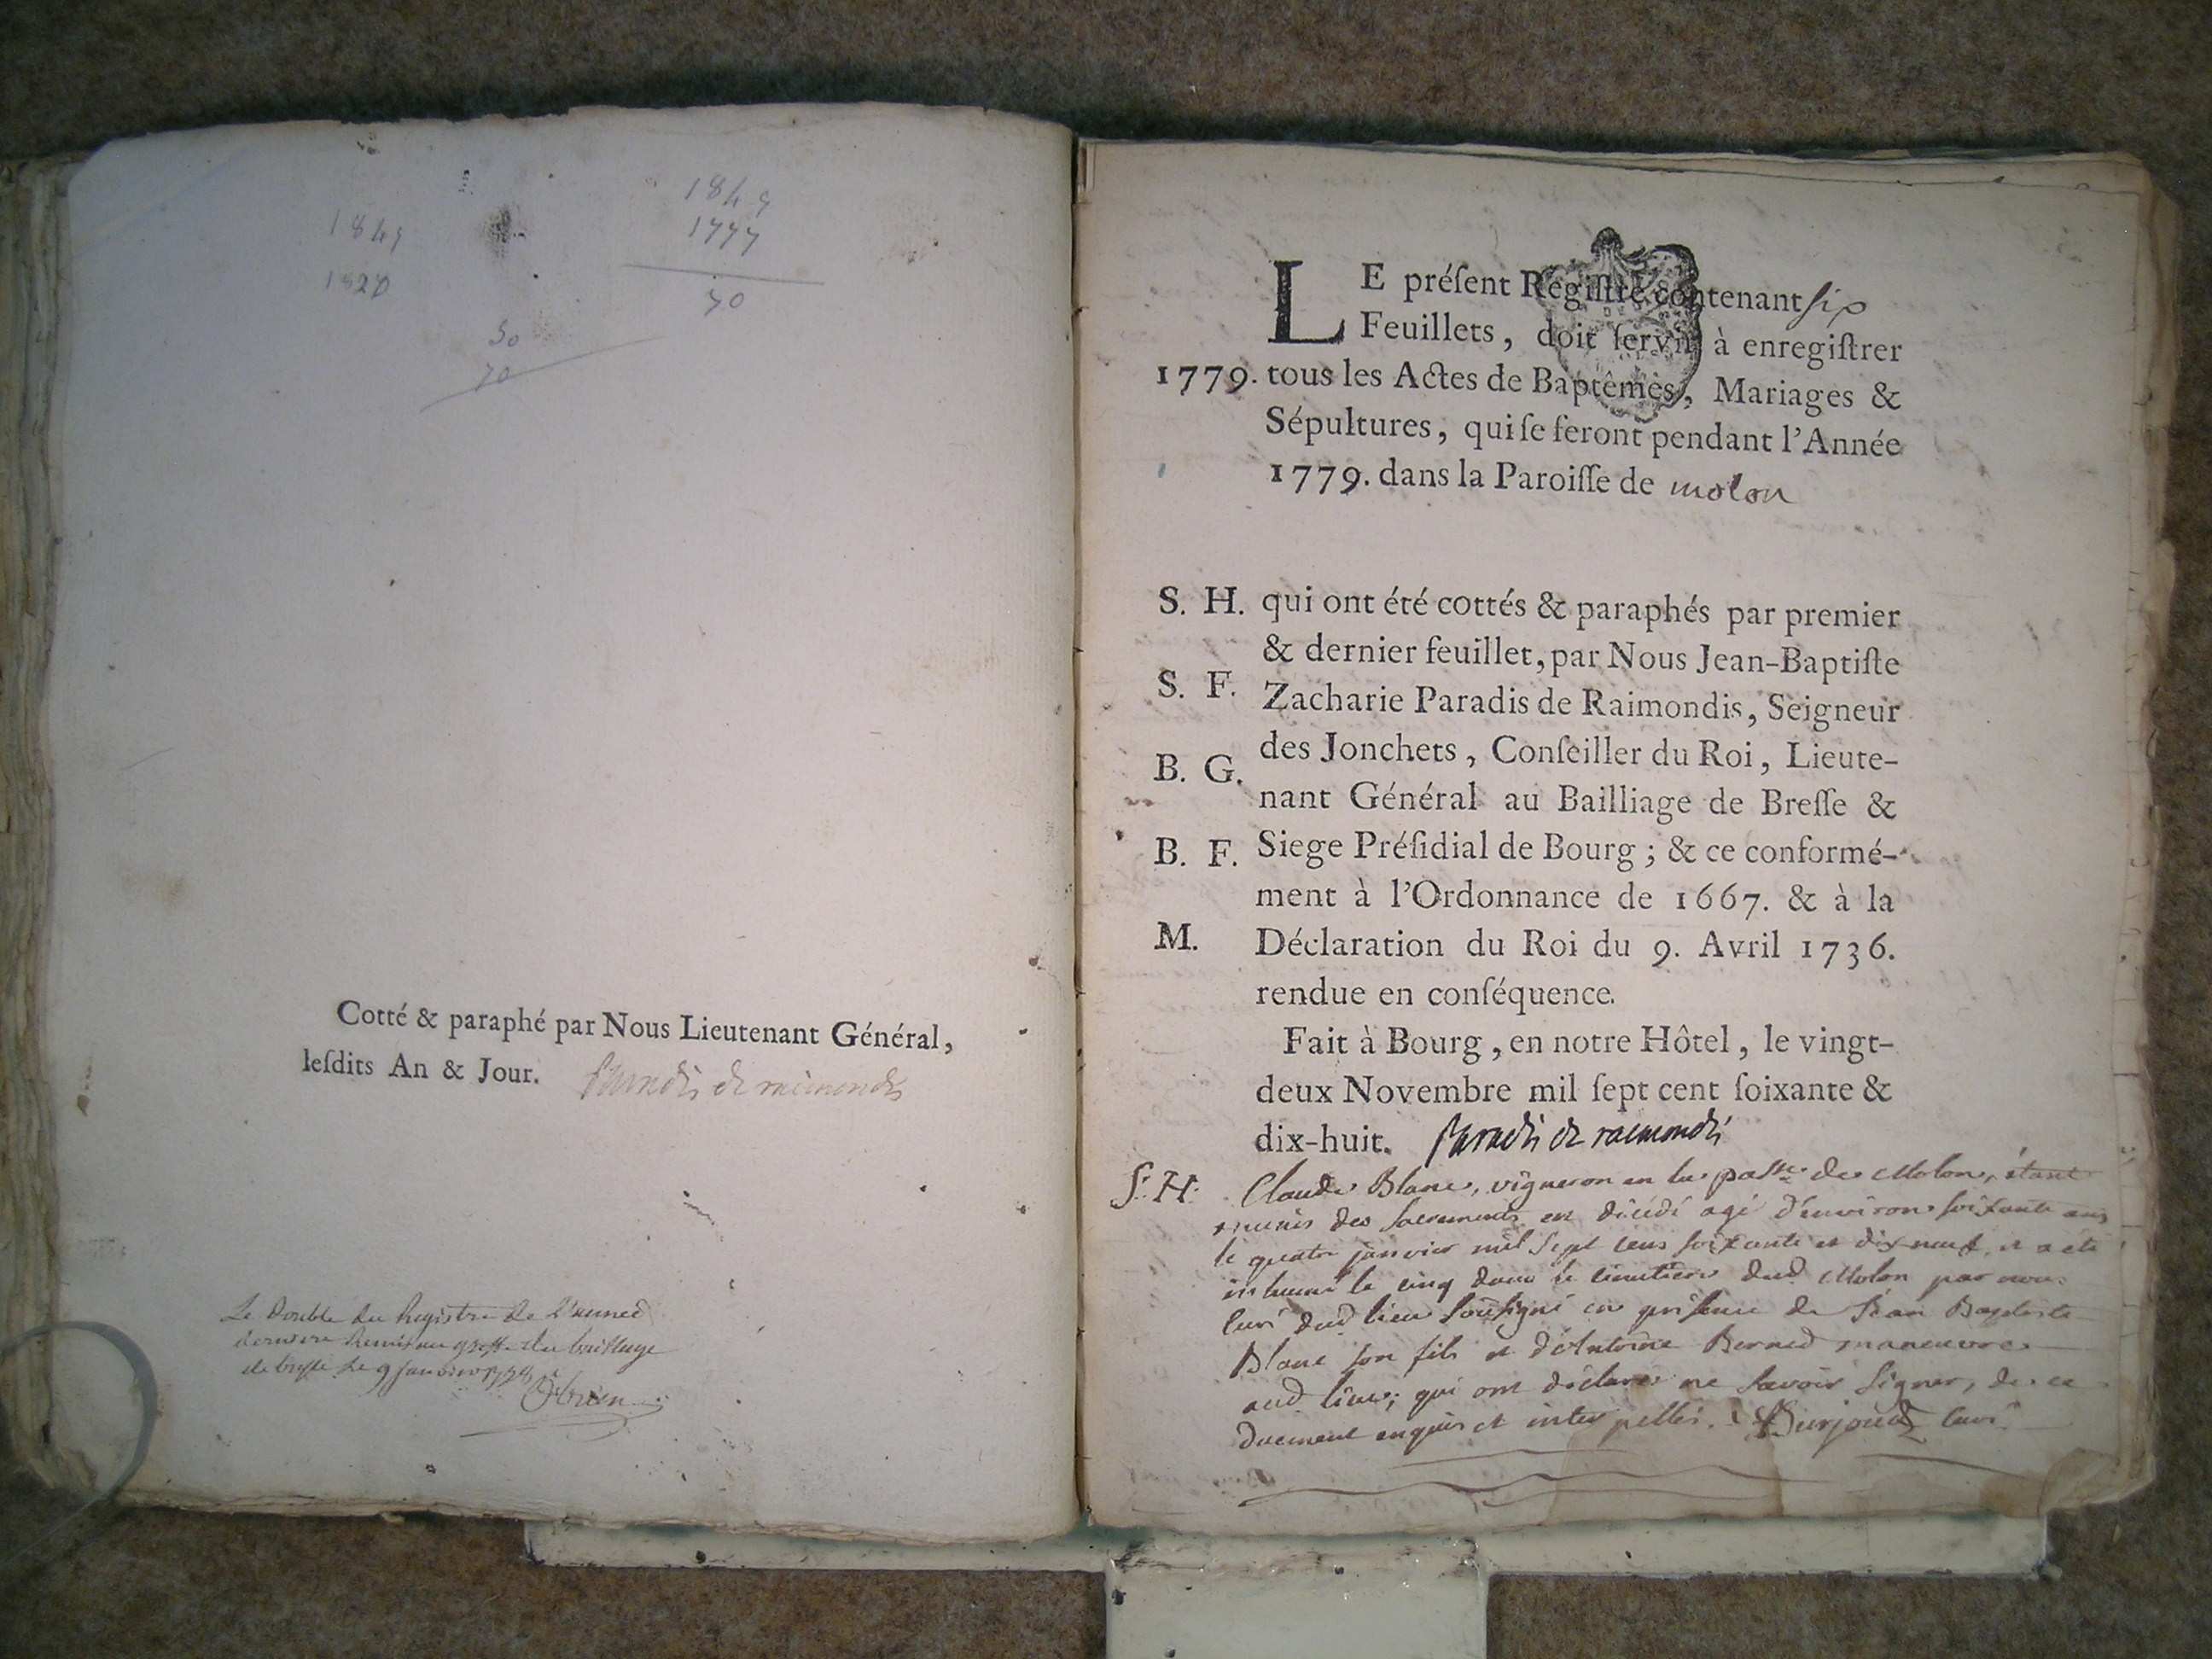 1849
1820
50
70
1849
1777
70
Cotté & paraphé par Nous Lieutenant Général,
leſdits An & Jour. Paradis de raimondis
Le Double du Registre de L'année
derniere Remis au greffe du bailliage
de bresse Le 9 janvier 1779
LE préſent Régiſtre contenant six
Feuillets, doit ſervir à enregiſtrer
1779. tous les Actes de Baptêmes, Mariages &
Sépultures, qui ſe feront pendant l'Année
1779. dans la Paroiſſe de molon
S. H. qui ont été cottés & paraphés par premier
& dernier feuillet, par Nous Jean-Baptiſte
S. F. Zacharie Paradis de Raimondis, Seigneur
des Jonchets, Conſeiller du Roi, Lieute-
B. G. nant Général au Bailliage de Breſſe &
B. F. Siege Préſidial de Bourg; & ce conformé-
ment à l'Ordonnance de 1667. & à la
M. Déclaration du Roi du 9. Avril 1736.
rendue en conſéquence.
Fait à Bourg, en notre Hôtel, le vingt-
deux Novembre mil ſept cent ſoixante &
dix-huit. Paradis de raimondis
S: H: Claude Blanc, vigneron en la passe de Molon, étant
munis des sacrements est décédé agé d'environ soixante ans
le quatre janvier mil sept cens soixante et dix neuf, et a eté
inhumé le cinq dans le cimetiere dud Molon par nous
curé dud lieu soussigné en présence de Jean Baptiste
Blanc son fils et d'Antoine Bernard manœuvre
aud lieu; qui ont déclaré ne savoir signer, de ce
duement enquis et interpellés. Burjoud curé